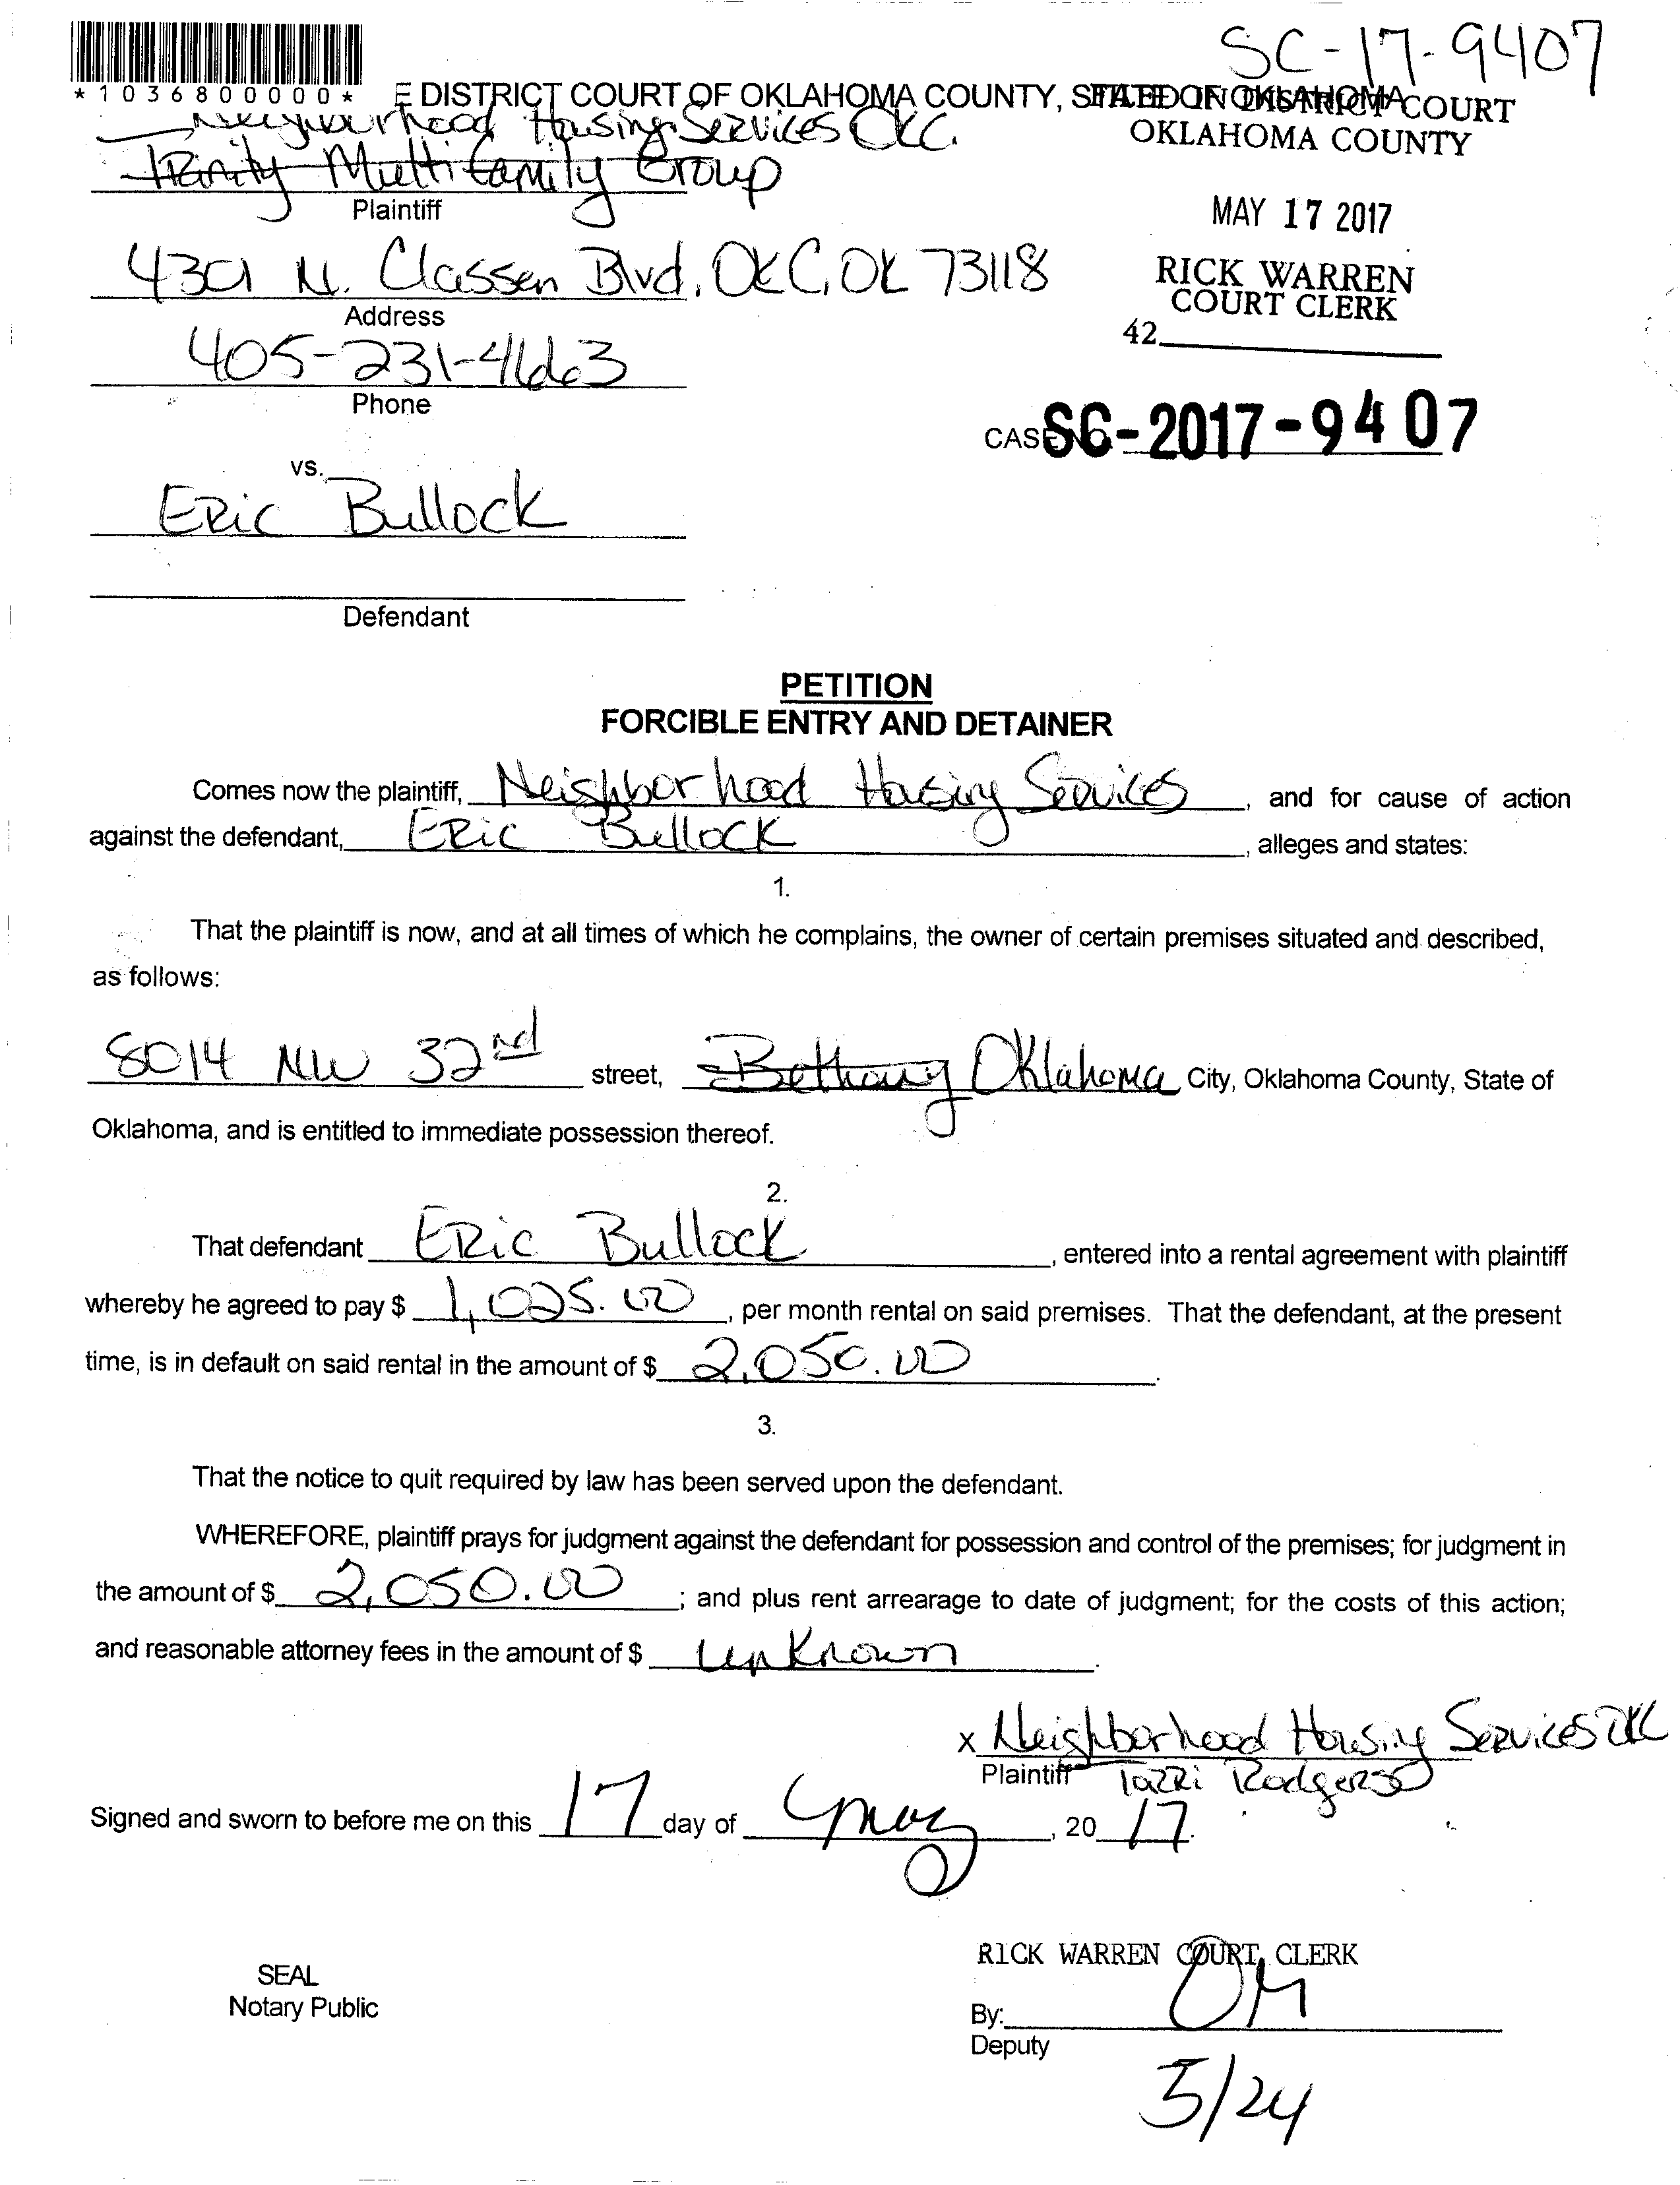 SC-17-9407
*1036800000*
E DISTRICT COURT OF OKLAHOMA COUNTY, STATE OF OKLAHOMA
FILED IN DISTRICT COURT
OKLAHOMA COUNTY
Neighborhood Housing Services OKC.
Trinity Multifamily Group
Plaintiff
MAY 17 2017
4301 N. Classen Blvd, OKC, OK 73118
Address
RICK WARREN
COURT CLERK
42
405-231-4663
Phone
CASE NO. SC-2017-9407
vs.
ERic Bullock
Defendant
PETITION
FORCIBLE ENTRY AND DETAINER
Comes now the plaintiff, Neighborhood Housing Services, and for cause of action
against the defendant, ERic Bullock, alleges and states:
1.
That the plaintiff is now, and at all times of which he complains, the owner of certain premises situated and described,
as follows:
8014 NW 32nd street, Bethany Oklahoma City, Oklahoma County, State of
Oklahoma, and is entitled to immediate possession thereof.
2.
That defendant ERic Bullock, entered into a rental agreement with plaintiff
whereby he agreed to pay $ 1,025.00, per month rental on said premises. That the defendant, at the present
time, is in default on said rental in the amount of $ 2,050.00.
3.
That the notice to quit required by law has been served upon the defendant.
WHEREFORE, plaintiff prays for judgment against the defendant for possession and control of the premises; for judgment in
the amount of $ 2,050.00; and plus rent arrearage to date of judgment; for the costs of this action;
and reasonable attorney fees in the amount of $ unknown.
x Neighborhood Housing Services OKC
Plaintiff Rodgers
Signed and sworn to before me on this 17 day of may, 20 17.
RICK WARREN COURT CLERK
SEAL
Notary Public
By: OM
Deputy
5/24